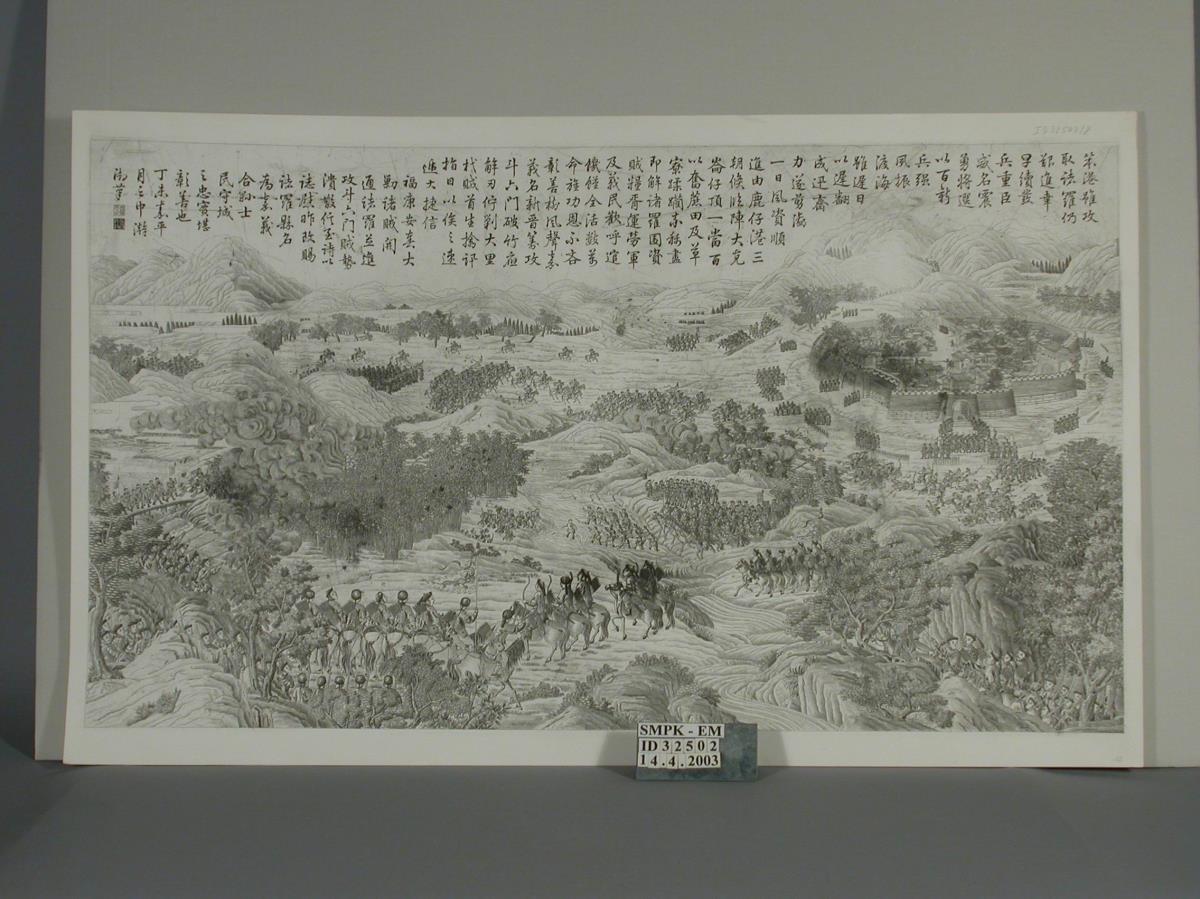 笨港雖攻
取諸羅仍
艱進章
早續發
兵重臣
威名震
勇將選
以百巴
兵强
風振
渡海
雖遲日
以遲翻
成迅齋
力遂剪滂
一日風資順
進由鹿仔港三
朝候臨陣大克
崙仔頂一當百
以奮蔗田及草
寮蹂躪亦務盡
即解諸羅圍資
賊糧胥運勞軍
及義民歡呼道
饑餒全活數萬
命旌功恩不吝
彰善樹風聲嘉
義名新晉籌攻
斗六門破竹應
解刃佇到大里
杙賊首生擒訊
指日以俟之速
遞大捷信
福康安奏大
剿諸賊開
通諸羅並進
攻斗六門賊勢
潰散佇至詩以
誌慰昨改賜
諸羅縣名
為嘉義
合勵士
民守城
之忠實堪
彰善也
丁未嘉平
月之中澣
御筆
ID 32502/8
SMPK - EM
ID 32502
14.4.2003